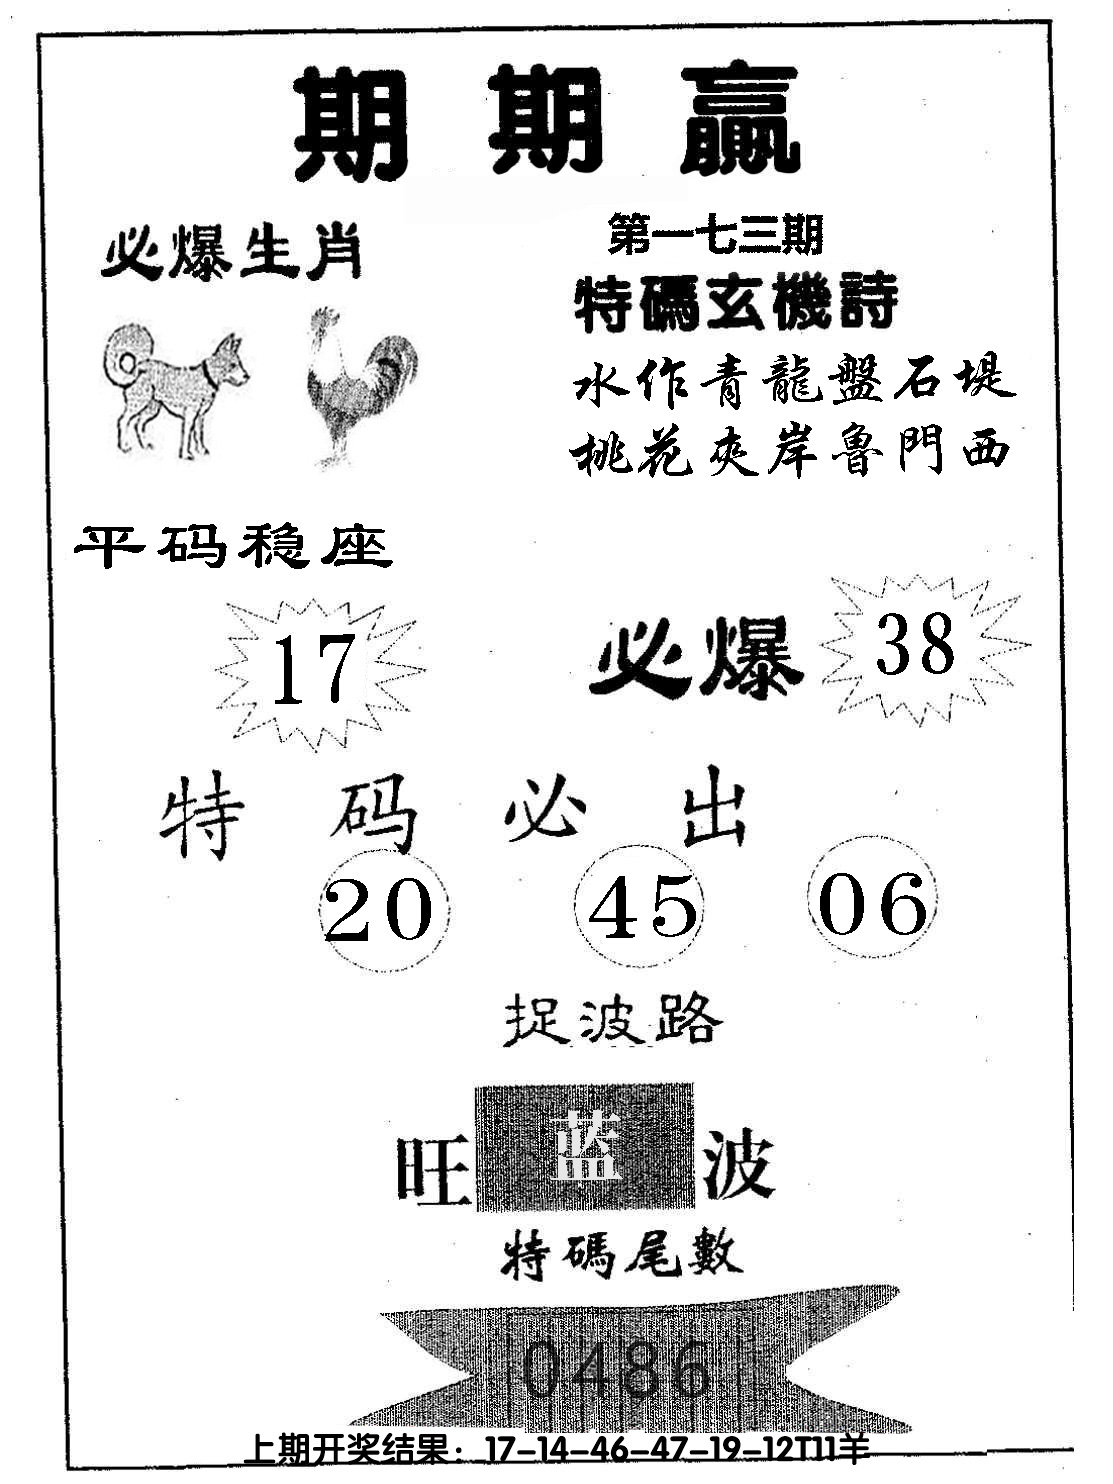 期期贏
必爆生肖
第一七三期
特碼玄機詩
水作青龍盤石堤
桃花夾岸魯門西
平码稳座
17
必爆 38
特码必出
20 45 06
捉波路
旺 蓝 波
特碼尾數
0486
上期开奖结果：17-14-46-47-19-12T11羊